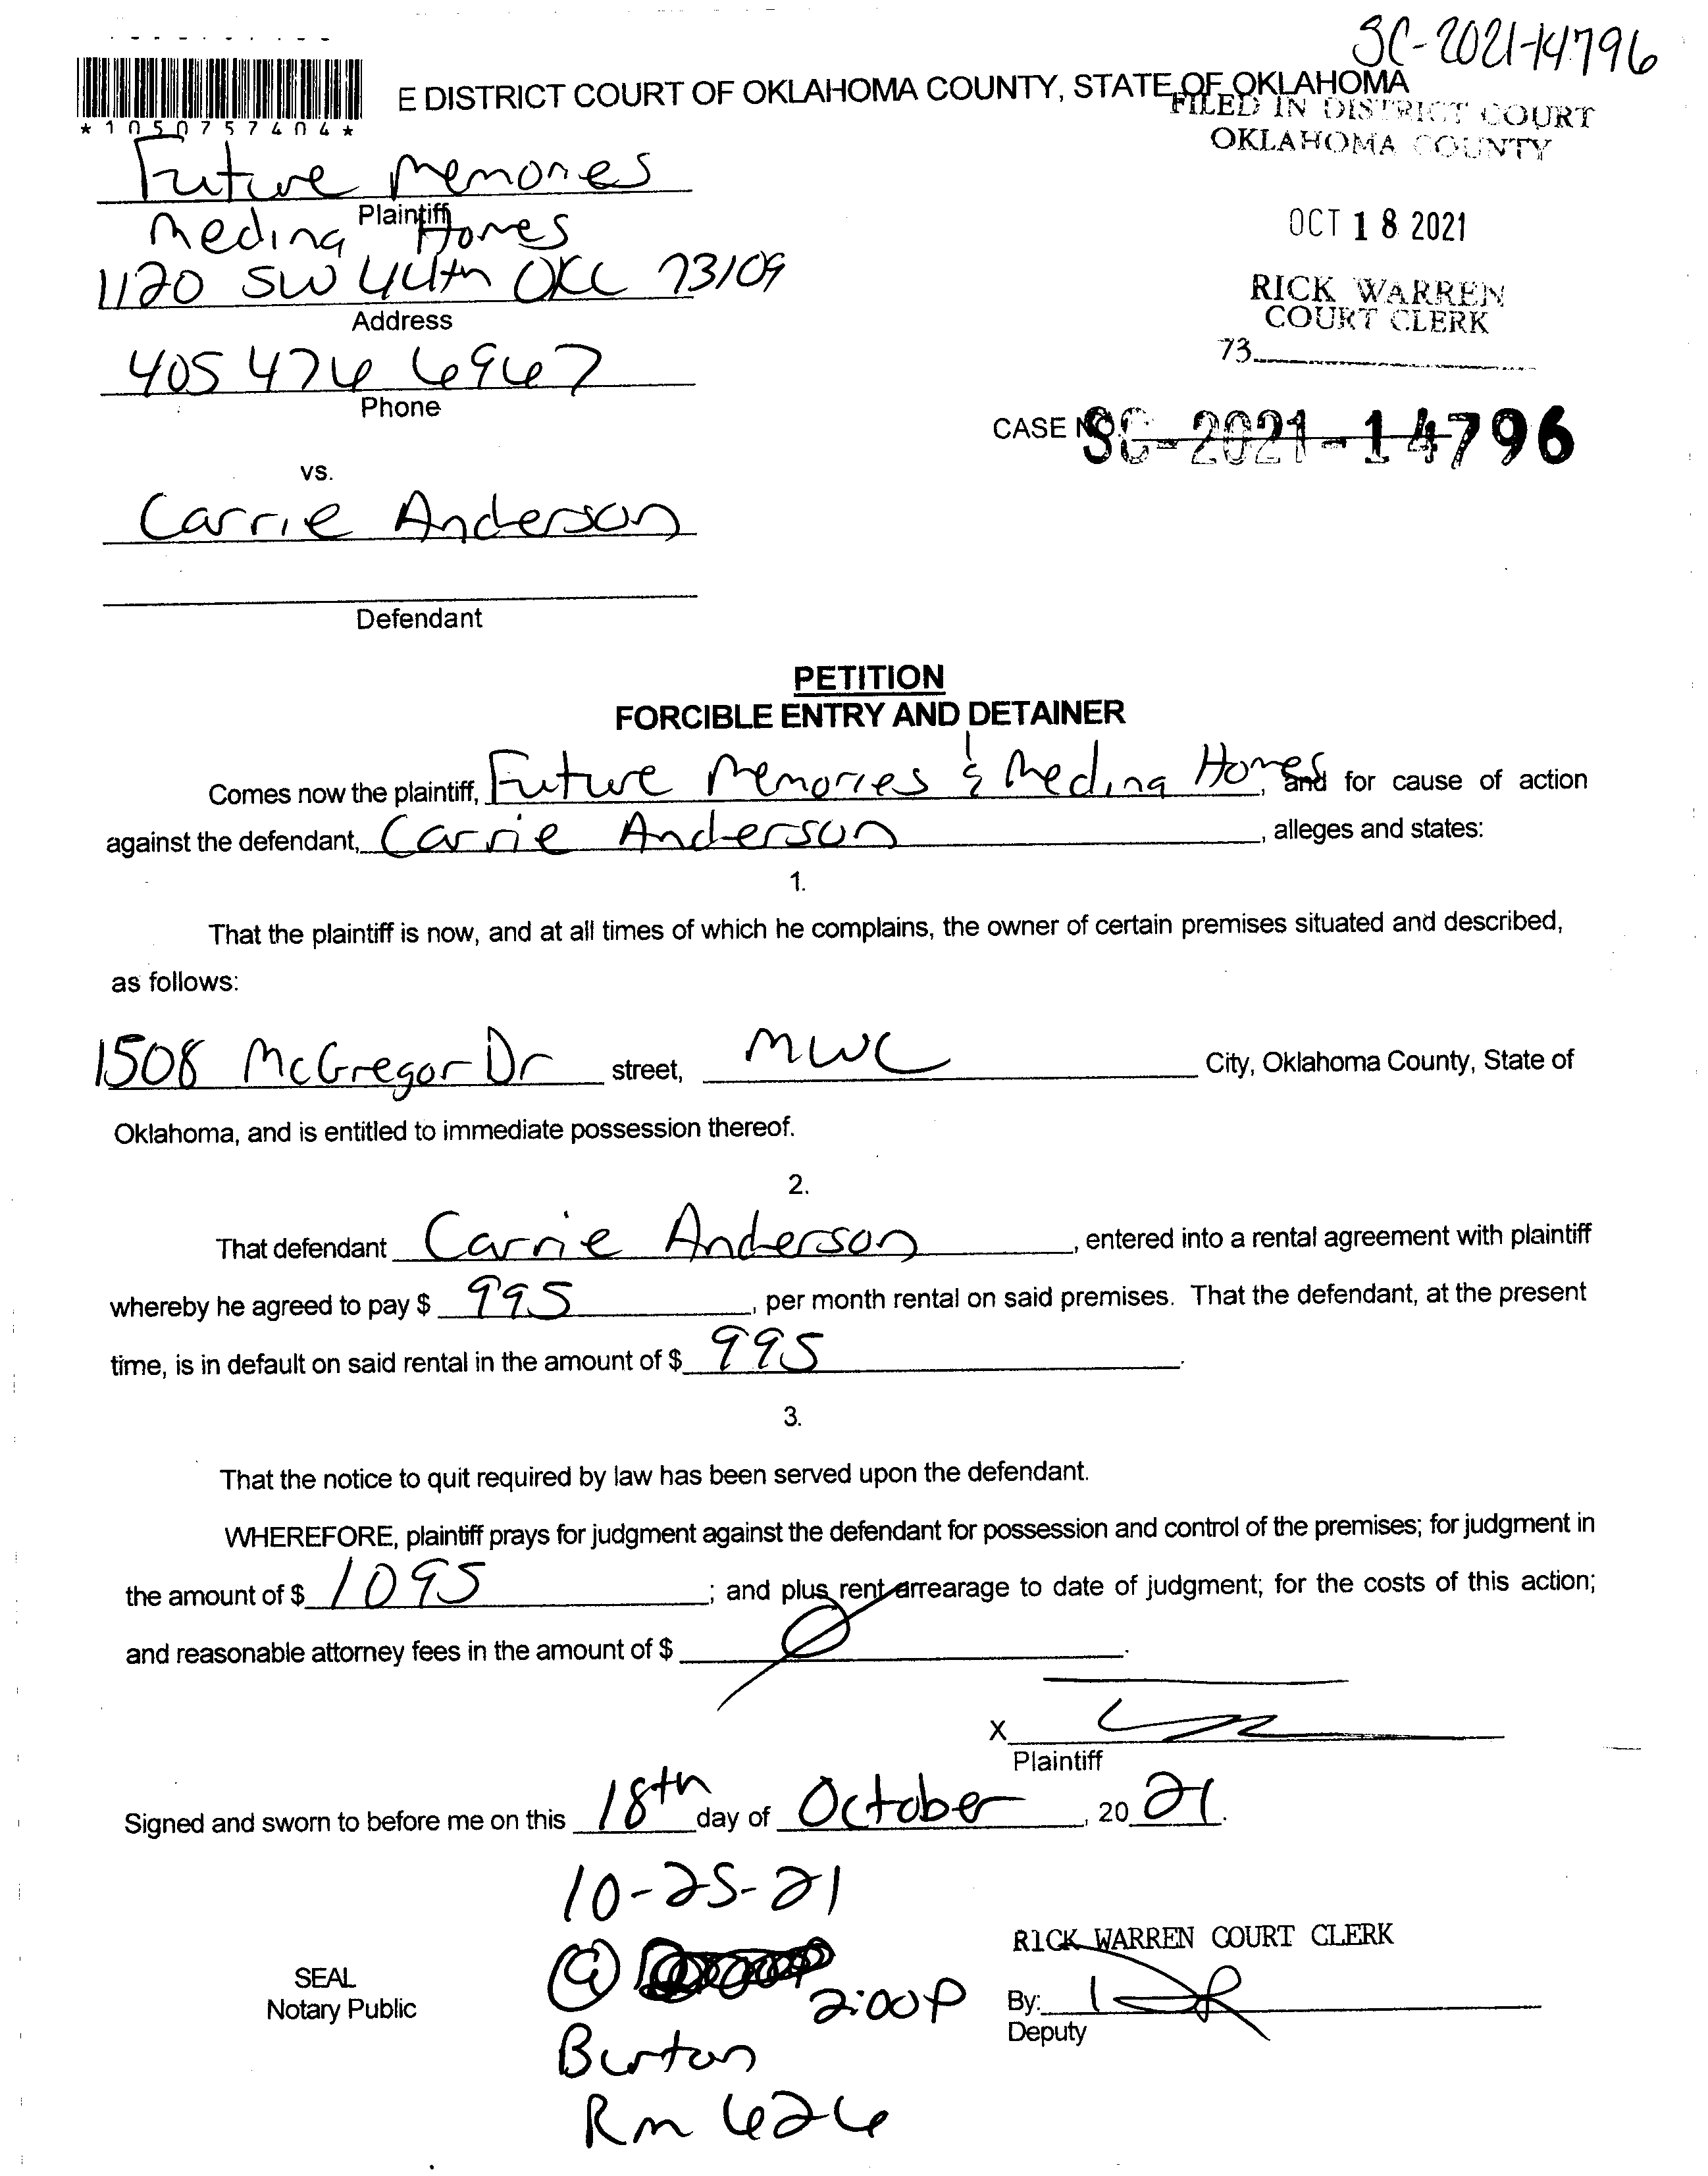 SC-2021-14796
E DISTRICT COURT OF OKLAHOMA COUNTY, STATE OF OKLAHOMA
*1050757404*
FILED IN DISTRICT COURT
OKLAHOMA COUNTY
Future Memories
Plaintiff
Medina Homes
OCT 18 2021
1120 SW 44th OKC 73109
Address
RICK WARREN
COURT CLERK
405 476 6967
Phone
73
CASE NO. SC-2021-14796
vs.
Carrie Anderson
Defendant
PETITION
FORCIBLE ENTRY AND DETAINER
Comes now the plaintiff, Future Memories & Medina Homes, and for cause of action
against the defendant, Carrie Anderson, alleges and states:
1.
That the plaintiff is now, and at all times of which he complains, the owner of certain premises situated and described,
as follows:
1508 McGregor Dr street, MWC City, Oklahoma County, State of
Oklahoma, and is entitled to immediate possession thereof.
2.
That defendant Carrie Anderson, entered into a rental agreement with plaintiff
whereby he agreed to pay $ 995, per month rental on said premises. That the defendant, at the present
time, is in default on said rental in the amount of $ 995.
3.
That the notice to quit required by law has been served upon the defendant.
WHEREFORE, plaintiff prays for judgment against the defendant for possession and control of the premises; for judgment in
the amount of $ 1095; and plus rent arrearage to date of judgment; for the costs of this action;
and reasonable attorney fees in the amount of $ .
X
Plaintiff
Signed and sworn to before me on this 18th day of October, 20 21.
10-25-21
RICK WARREN COURT CLERK
@ 2:00P
SEAL
Notary Public
By:
Deputy
Burton
Rm 626